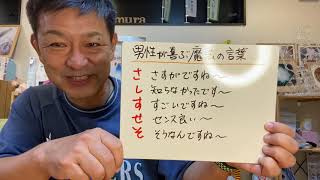 mura
男性が喜ぶ魔 の言葉
さ さすがですね〜
し 知らなかったです〜
す すごいですね〜
せ センス良い〜
そ そうなんですね〜
ERS